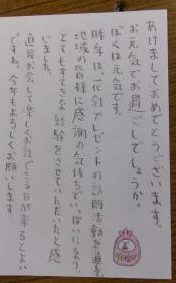 あけましておめでとうございます。
お元気でお過ごしでしょうか。
ぼくは元気です。
昨年は、花剣プレゼントの訪問活動を通し、
地域の皆様に感謝の気持ちでいっぱいになり、
とてもすてきな経験をさせていただいたと感じ
いました。
直接お会いして楽しくお話できる日が来るとよい
ですね。今年もよろしくお願いします